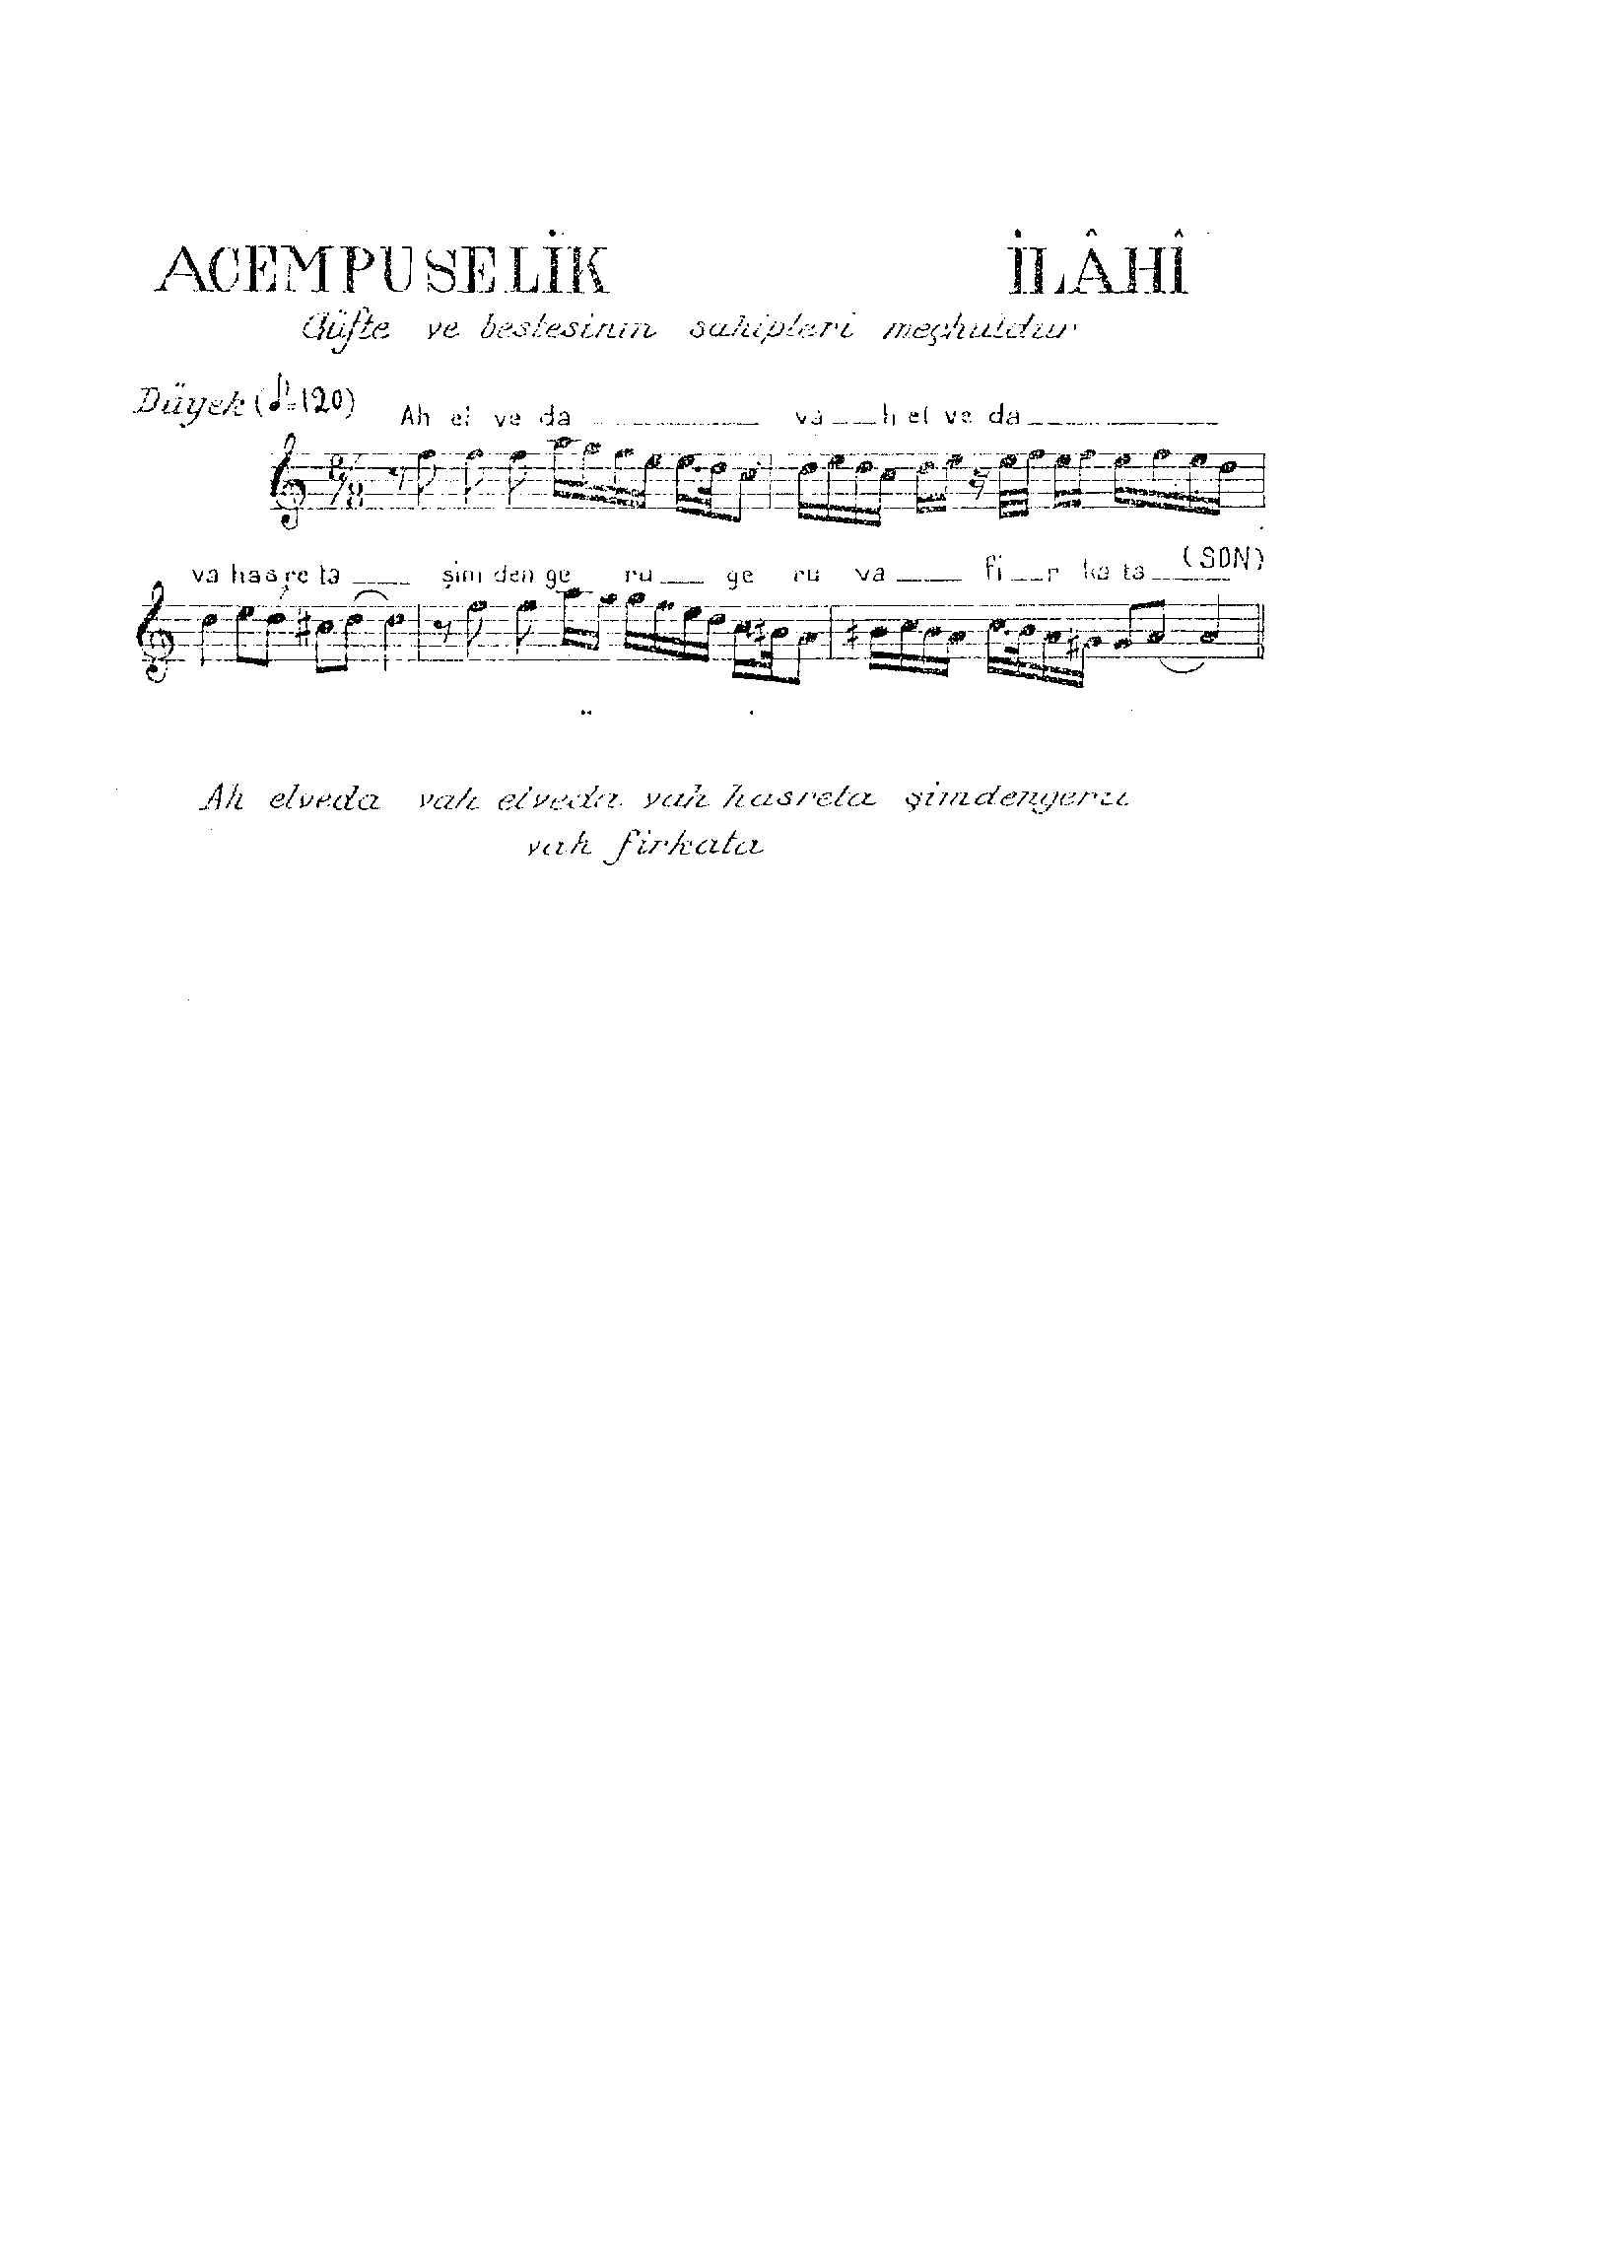 ACEMPUSELİK İLÂHÎ
Güfte ve bestesinin sahipleri meçhuldur
Düyek (♪=120)
Ah el ve da va h el ve da
8/8
va hasre ta şim den ge ru ge ru va fi r ka ta (SON)
Ah elveda vah elveda vah hasreta şimdengeru
vah firkata